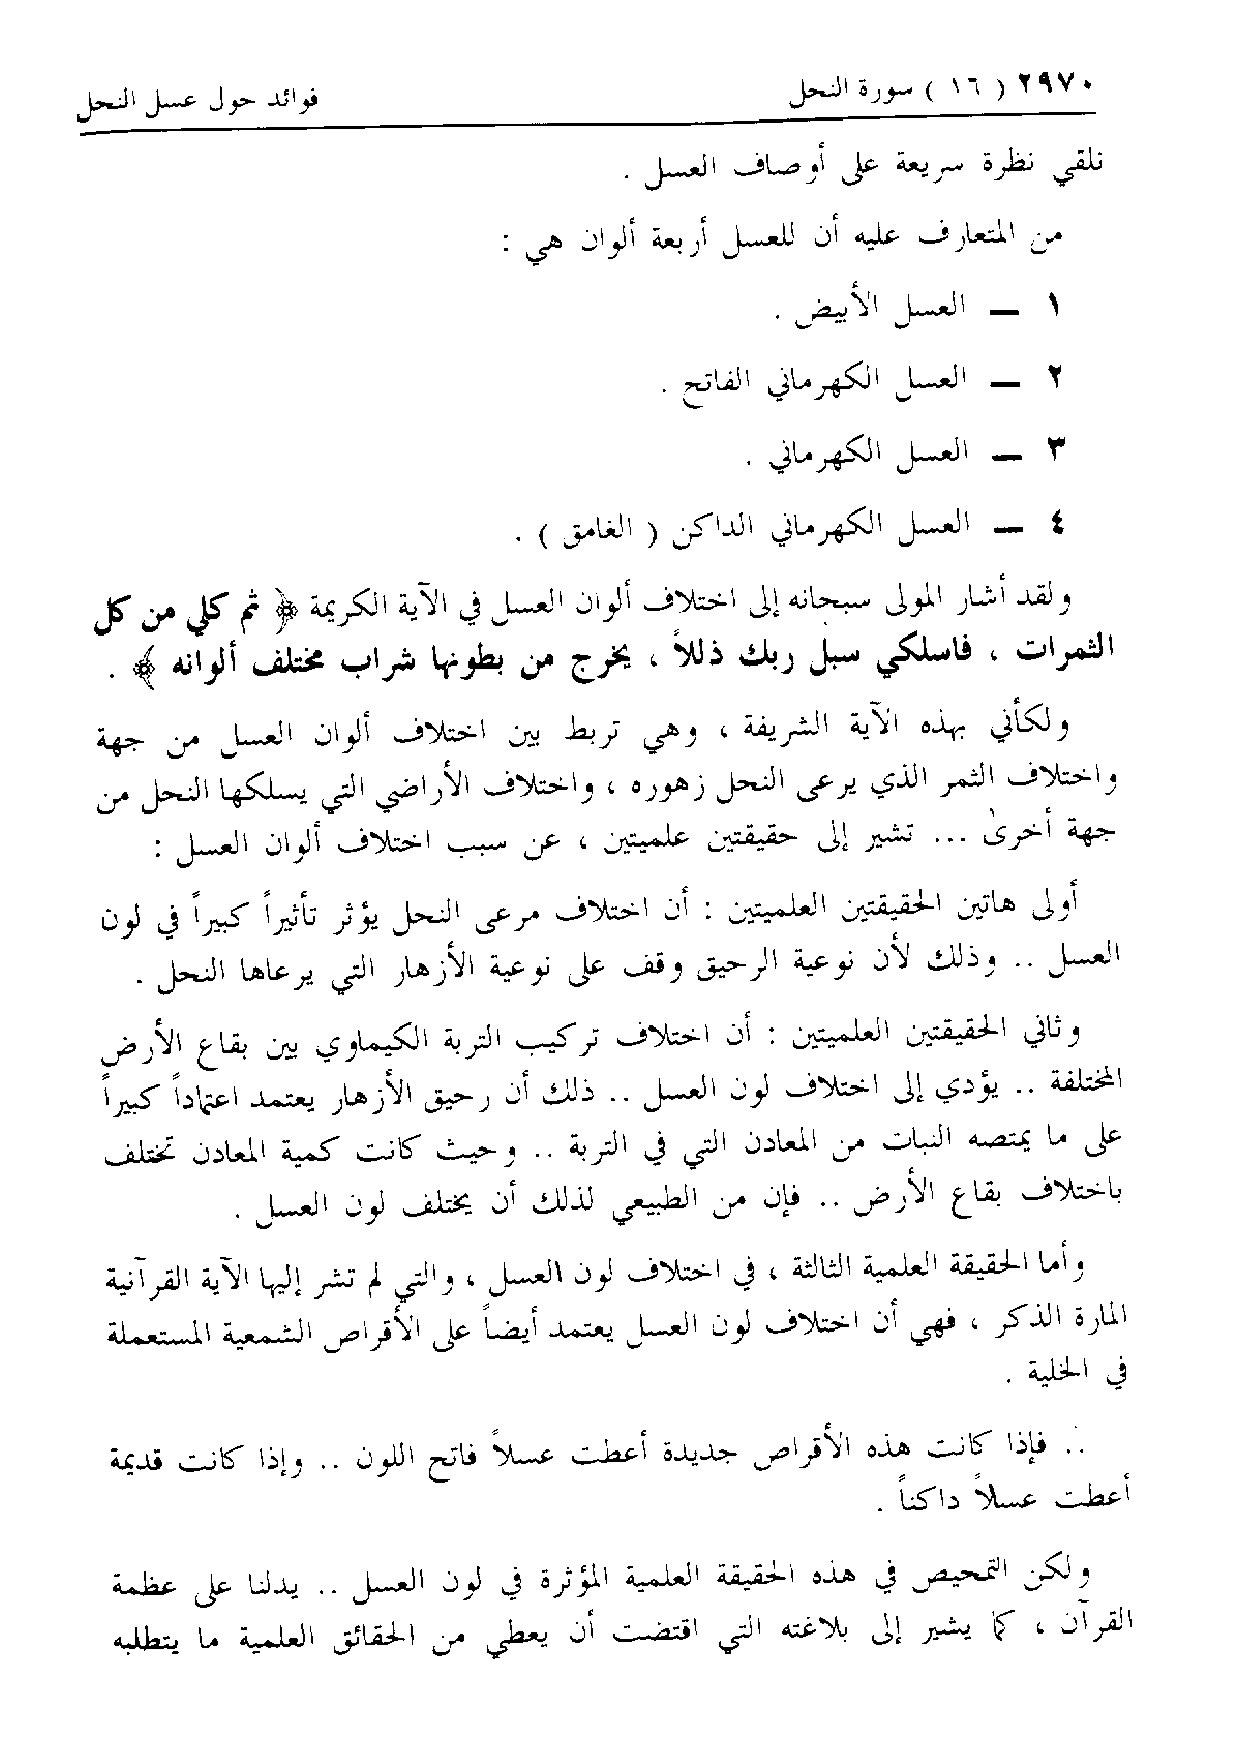 ٢٩٧٠ ( ١٦ ) سورة النحل فوائد حول عسل النحل
نلقي نظرة سريعة على أوصاف العسل .
من المتعارف عليه أن للعسل أربعة ألوان هي :
١ — العسل الأبيض .
٢ — العسل الكهرماني الفاتح .
٣ — العسل الكهرماني .
٤ — العسل الكهرماني الداكن ( الغامق ) .
ولقد أشار المولى سبحانه إلى اختلاف ألوان العسل في الآية الكريمة ﴿ ثم كلي من كل
الثمرات ، فاسلكي سبل ربك ذللاً ، يخرج من بطونها شراب مختلف ألوانه ﴾ .
ولكأني بهذه الآية الشريفة ، وهي تربط بين اختلاف ألوان العسل من جهة
واختلاف الثمر الذي يرعى النحل زهوره ، واختلاف الأراضي التي يسلكها النحل من
جهة أخرىٰ ... تشير إلى حقيقتين علميتين ، عن سبب اختلاف ألوان العسل :
أولى هاتين الحقيقتين العلميتين : أن اختلاف مرعى النحل يؤثر تأثيراً كبيراً في لون
العسل .. وذلك لأن نوعية الرحيق وقف على نوعية الأزهار التي يرعاها النحل .
وثاني الحقيقتين العلميتين : أن اختلاف تركيب التربة الكيماوي بين بقاع الأرض
المختلفة .. يؤدي إلى اختلاف لون العسل .. ذلك أن رحيق الأزهار يعتمد اعتماداً كبيراً
على ما يمتصه النبات من المعادن التي في التربة .. وحيث كانت كمية المعادن تختلف
باختلاف بقاع الأرض .. فإن من الطبيعي لذلك أن يختلف لون العسل .
وأما الحقيقة العلمية الثالثة ، في اختلاف لون العسل ، والتي لم تشر إليها الآية القرآنية
المارة الذكر ، فهي أن اختلاف لون العسل يعتمد أيضاً على الأقراص الشمعية المستعملة
في الخلية .
.. فإذا كانت هذه الأقراص جديدة أعطت عسلاً فاتح اللون .. وإذا كانت قديمة
أعطت عسلاً داكناً .
ولكن التمحيص في هذه الحقيقة العلمية المؤثرة في لون العسل .. يدلنا على عظمة
القرآن ، كما يشير إلى بلاغته التي اقتضت أن يعطي من الحقائق العلمية ما يتطلبه